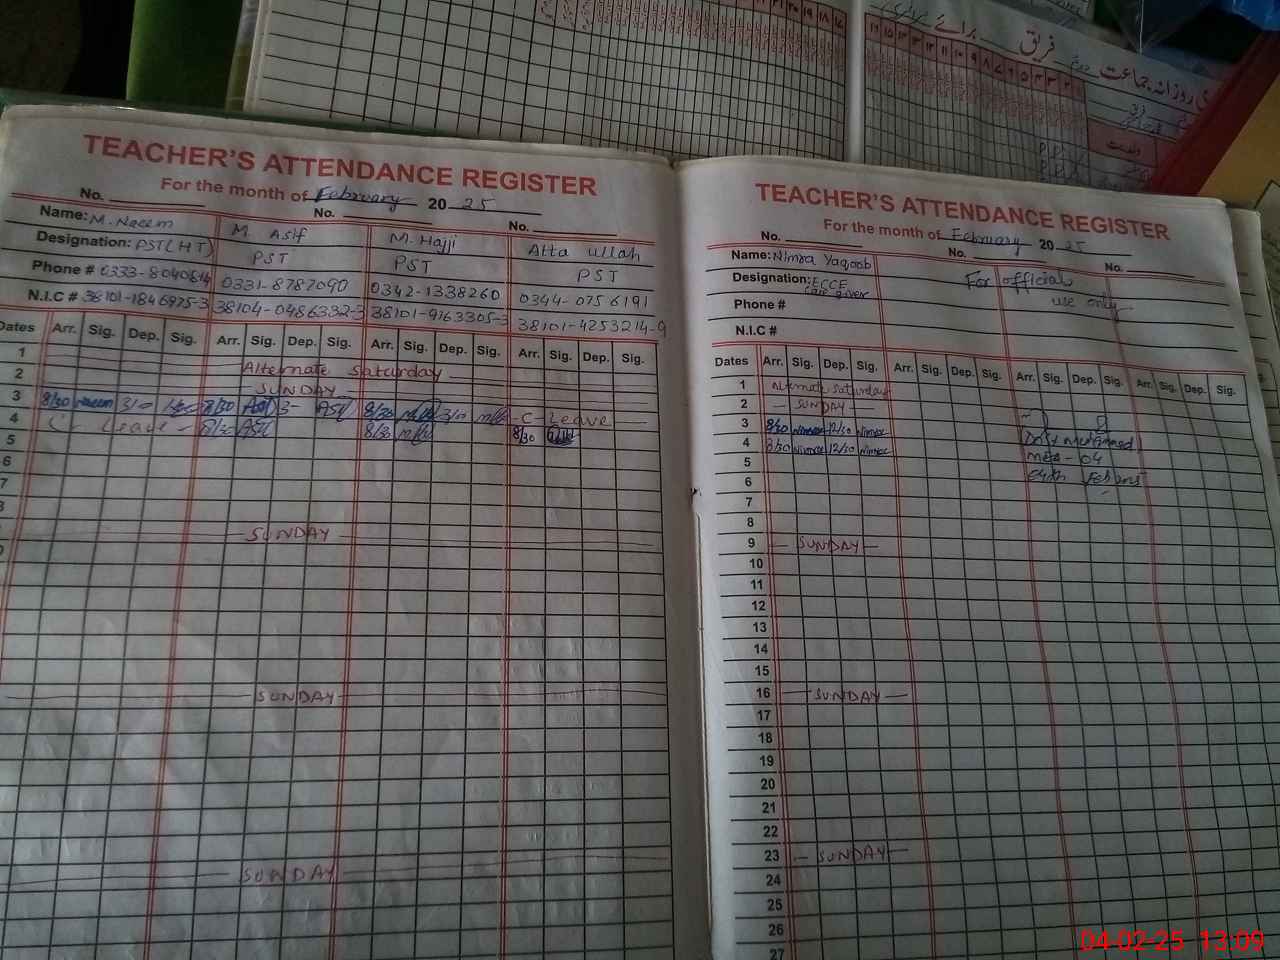 ی روزانہ جماعت فریق برائے
ولدیت
TEACHER'S ATTENDANCE REGISTER
For the month of February 2025
No. No. No.
Name: M. Naeem M. Asif M. Hajji Atta ullah
Designation: PST(HT) PST PST PST
Phone # 0333-8040614 0331-8787090 0342-1338260 0344-0756191
N.I.C # 38101-1846975-3 38104-0486332-3 38101-9163305-3 38101-4253214-9
Dates Arr. Sig. Dep. Sig. Arr. Sig. Dep. Sig. Arr. Sig. Dep. Sig. Arr. Sig. Dep. Sig.
1
2 Alternate Saturday
SUNDAY
3 8/30 naeem 3/0 8/30 Asif 3- Asif 8/30 3/0 C-Leave
4 C- Leave - 8/30 Asif 8/30 8/30
5
6
7
8
SUNDAY
SUNDAY
SUNDAY
TEACHER'S ATTENDANCE REGISTER
For the month of February 2025
No. No. No.
Name: Nimra Yaqoob For official use only
Designation: ECCE Care giver
Phone #
N.I.C #
Dates Arr. Sig. Dep. Sig. Arr. Sig. Dep. Sig. Arr. Sig. Dep. Sig. Arr. Sig. Dep. Sig.
1 Alternate Saturday
2 - SUNDAY -
3 8/30 Nimra 12/30 Nimra
4 8/30 Nimra 12/30 Nimra Muhammad
5 - 04
6 04th Feb
7
8
9 - SUNDAY -
10
11
12
13
14
15
16 - SUNDAY -
17
18
19
20
21
22
23 - SUNDAY -
24
25
26
27
04-02-25 13:09